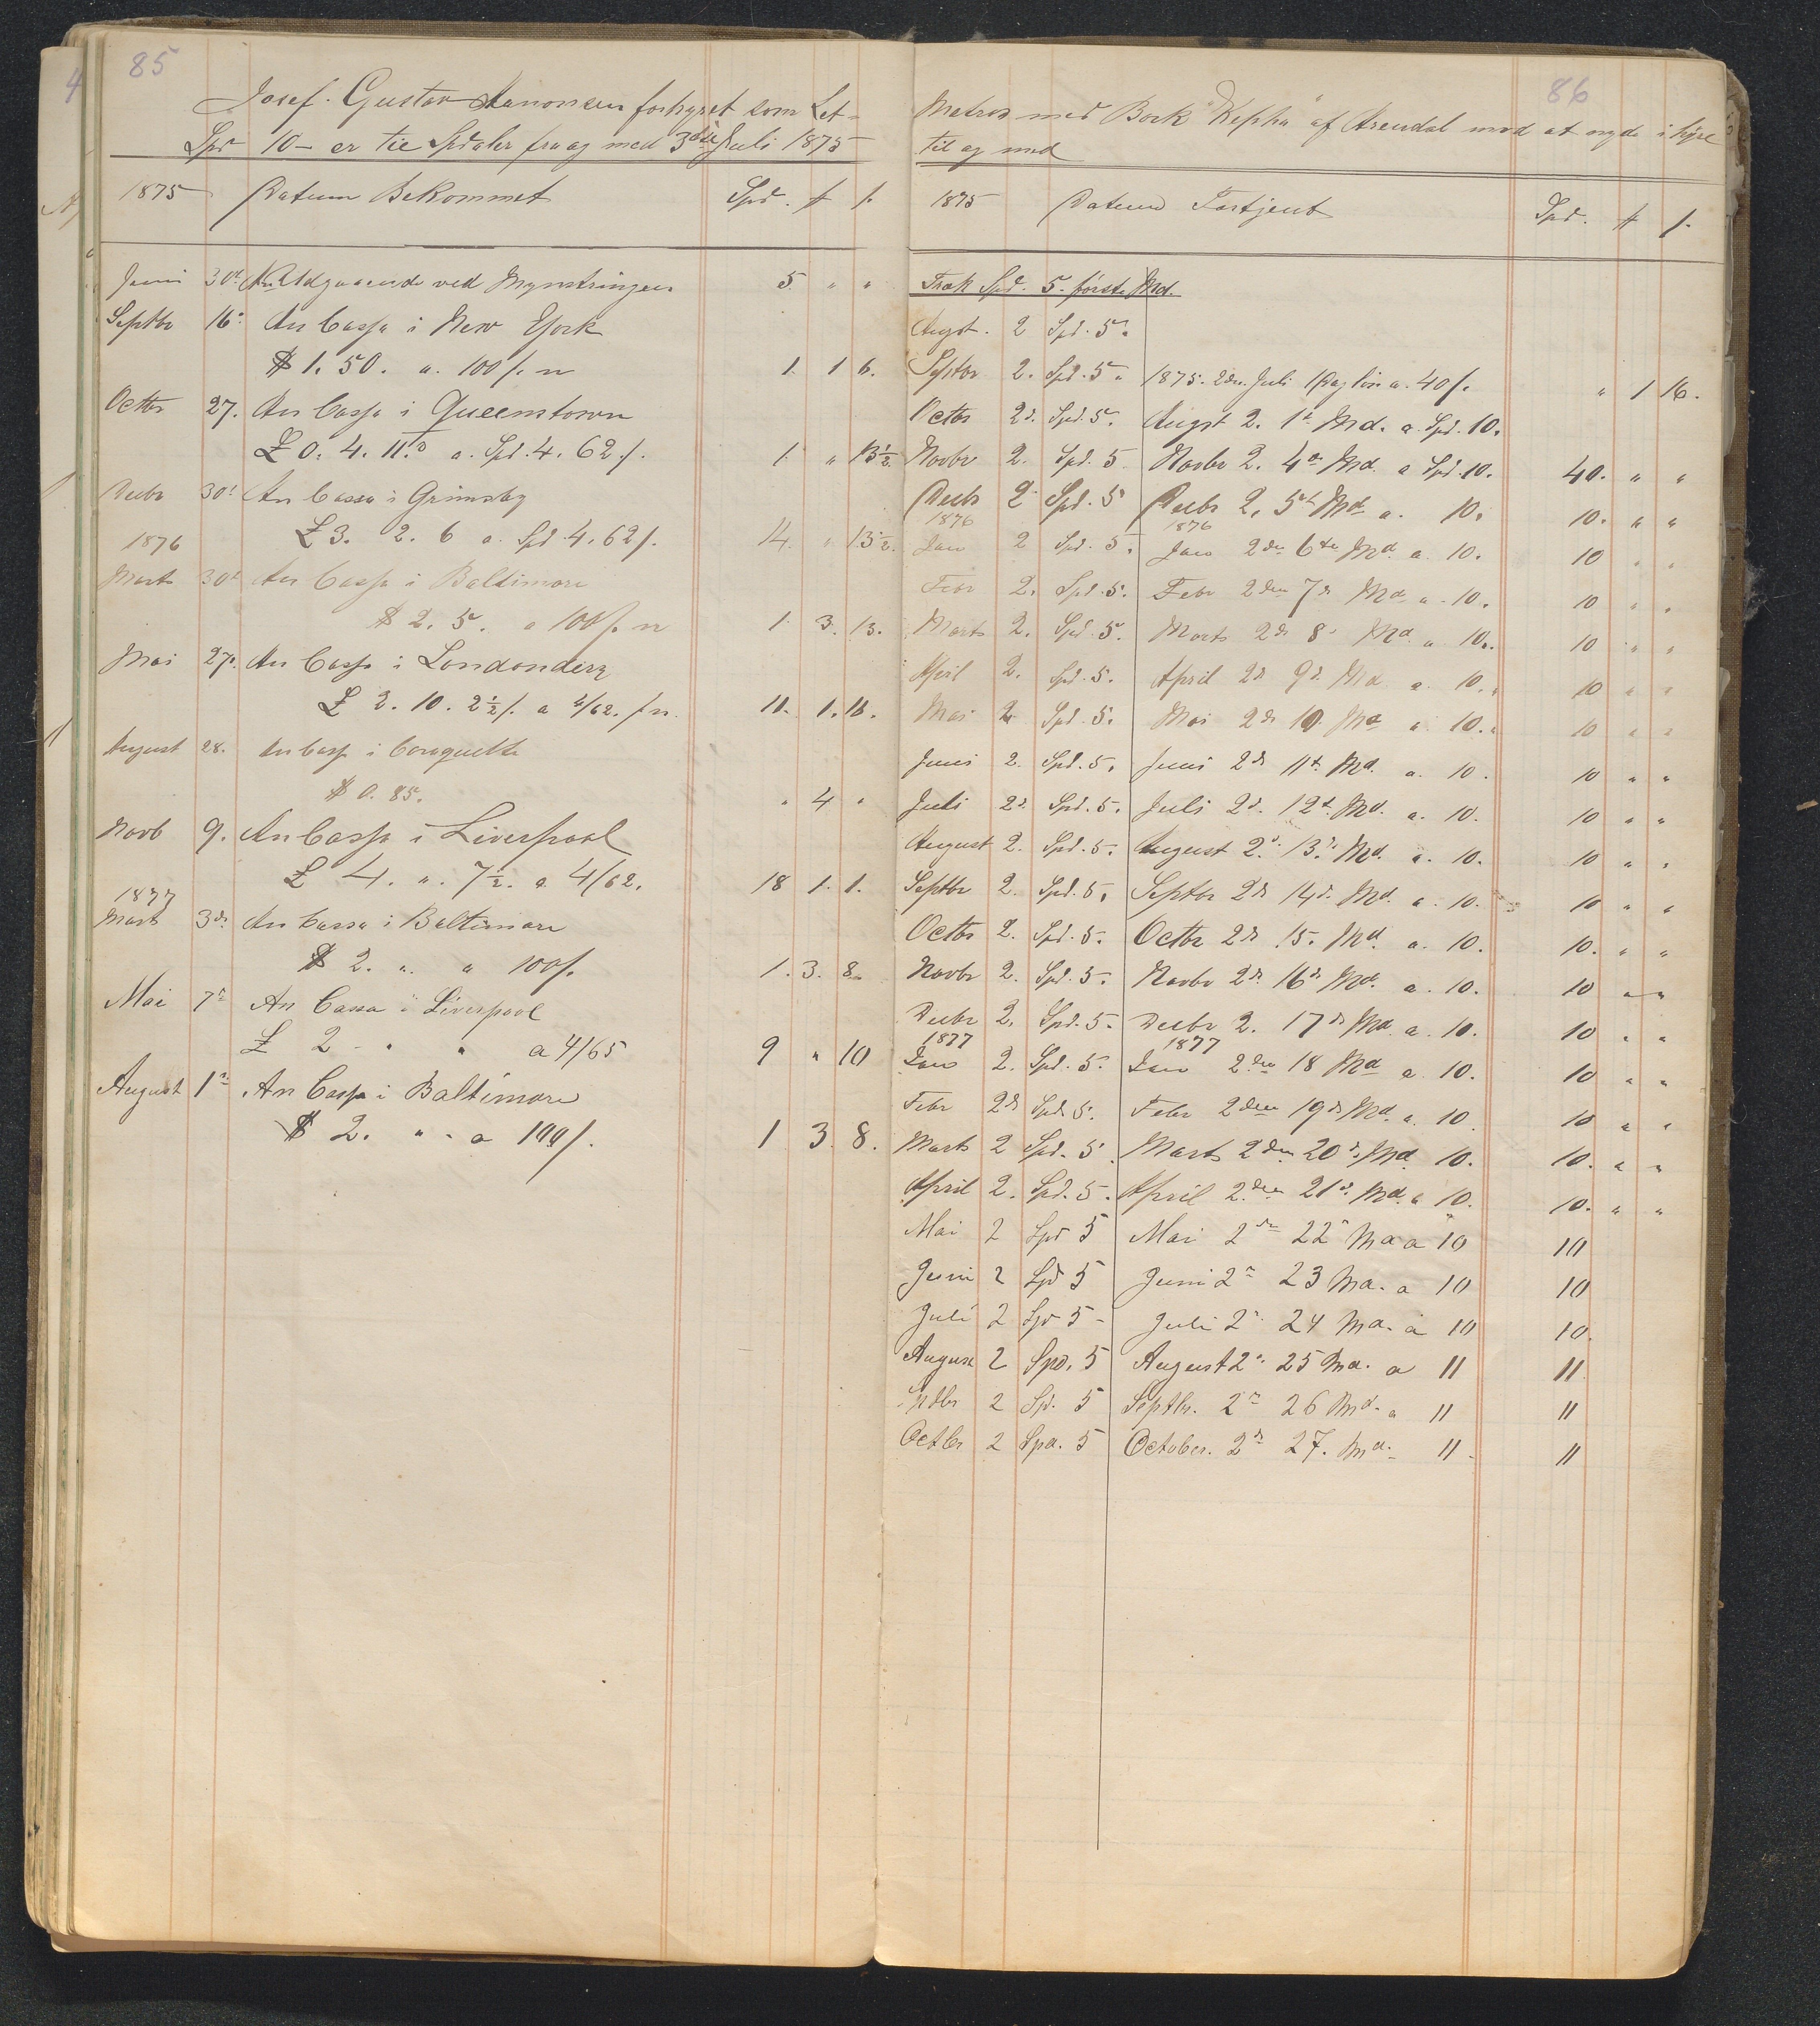 85
Josef. Gustav Aanonsen forhyret som Let-
Spd 10 – er tie Spdaler fra og med 3die Juli 1875
1875 Datum Bekommet Spd. ¥ ß.
Juni 30te Udgaaende ved Mynstringen 5 " "
Septbr 16. An Cassa i New York
$ 1. 50. a. 100 ß. n 1. 1 6.
Octbr 27. An Cassa i Queenstown
£ 0. 4. 11. a. Spd. 4. 62 ß. 1. " 13½
Decbr 30t An Cassa i Grimsby
£ 3. 2. 6 a. Spd. 4. 62 ß. 14. " 13½.
1876
Marts 30t An Cassa i Baltimore
$ 2. 5. a 100 ß. n 1. 3. 13.
Mai 27. An Cassa i Londonderry
£ 2. 10. 2½ ß. a 4/62. ß n. 11. 1. 16.
August 28. An Cassa i
$ 0. 85. " 4 "
Novb 9. An Cassa i Liverpool
£ 4. ". 7½. a 4/62. 18 1. 1.
1877
Marts 3de An Cassa i Baltimore
$ 2. " a 100 ß. 1. 3. 8.
Mai 7de An Cassa i Liverpool
£ 2 - " " a 4/65 9 " 10
August 1de An Cassa i Baltimore
$ 2. " - a 100 ß. 1 3. 8.
86
Matros med Bark "Kepha" af Arendal mod at nyde i hyre
til og med
1875 Datum Fortjent Spd. ¥ ß.
Træk Spd. 5. første Md.
Augst. 2 Spd. 5.
Septbr 2. Spd. 5. 1875. 2den Juli 1 Dag løn a. 40 ß. " 1 16.
Octbr 2d. Spd. 5. Augst 2. 1te Md. a. Spd. 10.
Novbr 2. Spd. 5. Novbr 2. 4de Md. a Spd. 10. 40. " "
Decbr 2 Spd. 5 Decbr 2. 5te Md a. 10. 10. " "
1876 1876
Jan 2 Spd. 5. Jan 2den 6te Md. a. 10. 10 " "
Febr 2. Spd. 5. Febr 2den 7de Md a. 10. 10 " "
Marts 2. Spd. 5. Marts 2de 8de Md a 10. 10 " "
April 2. Spd. 5. April 2de 9de Md a. 10. 10 " "
Mai 2. Spd. 5. Mai 2de 10. Md a 10. 10 " "
Juni 2. Spd. 5. Juni 2de 11te Md. a. 10. 10 " "
Juli 2d. Spd. 5. Juli 2d. 12te Md. a. 10. 10 " "
August 2. Spd. 5. August 2d. 13de Md. a. 10. 10 " "
Septbr 2. Spd. 5. Septbr 2de 14de Md. a. 10. 10 " "
Octbr 2. Spd. 5. Octbr 2de 15. Md. a. 10. 10. " "
Novbr 2. Spd. 5. Novbr 2de 16de Md. a. 10. 10 " "
Decbr 2. Spd. 5. Decbr 2. 17de Md a. 10. 10 " "
1877 1877
Jan 2. Spd. 5. Jan 2den 18 Md a 10. 10 " "
Febr 2de Spd. 5. Febr 2den 19de Md a. 10. 10 " "
Marts 2 Spd. 5. Marts 2den 20de Md. 10. 10. " "
April 2. Spd. 5. April 2den 21d. Md. a 10. 10. " "
Mai 2 Spd 5 Mai 2de 22 Md a 10 10
Juni 2 Spd 5 Juni 2de 23 Md. a 10 10
Juli 2 Spd 5 - Juli 2de 24 Md. a 10 10.
August 2 Spd. 5 August 2de 25 Md. a 11 11.
Septbr 2 Spd. 5 Septbr. 2de 26 Md. a 11 11
Octbr 2 Spd. 5 October. 2de 27. Md. - 11 - 11